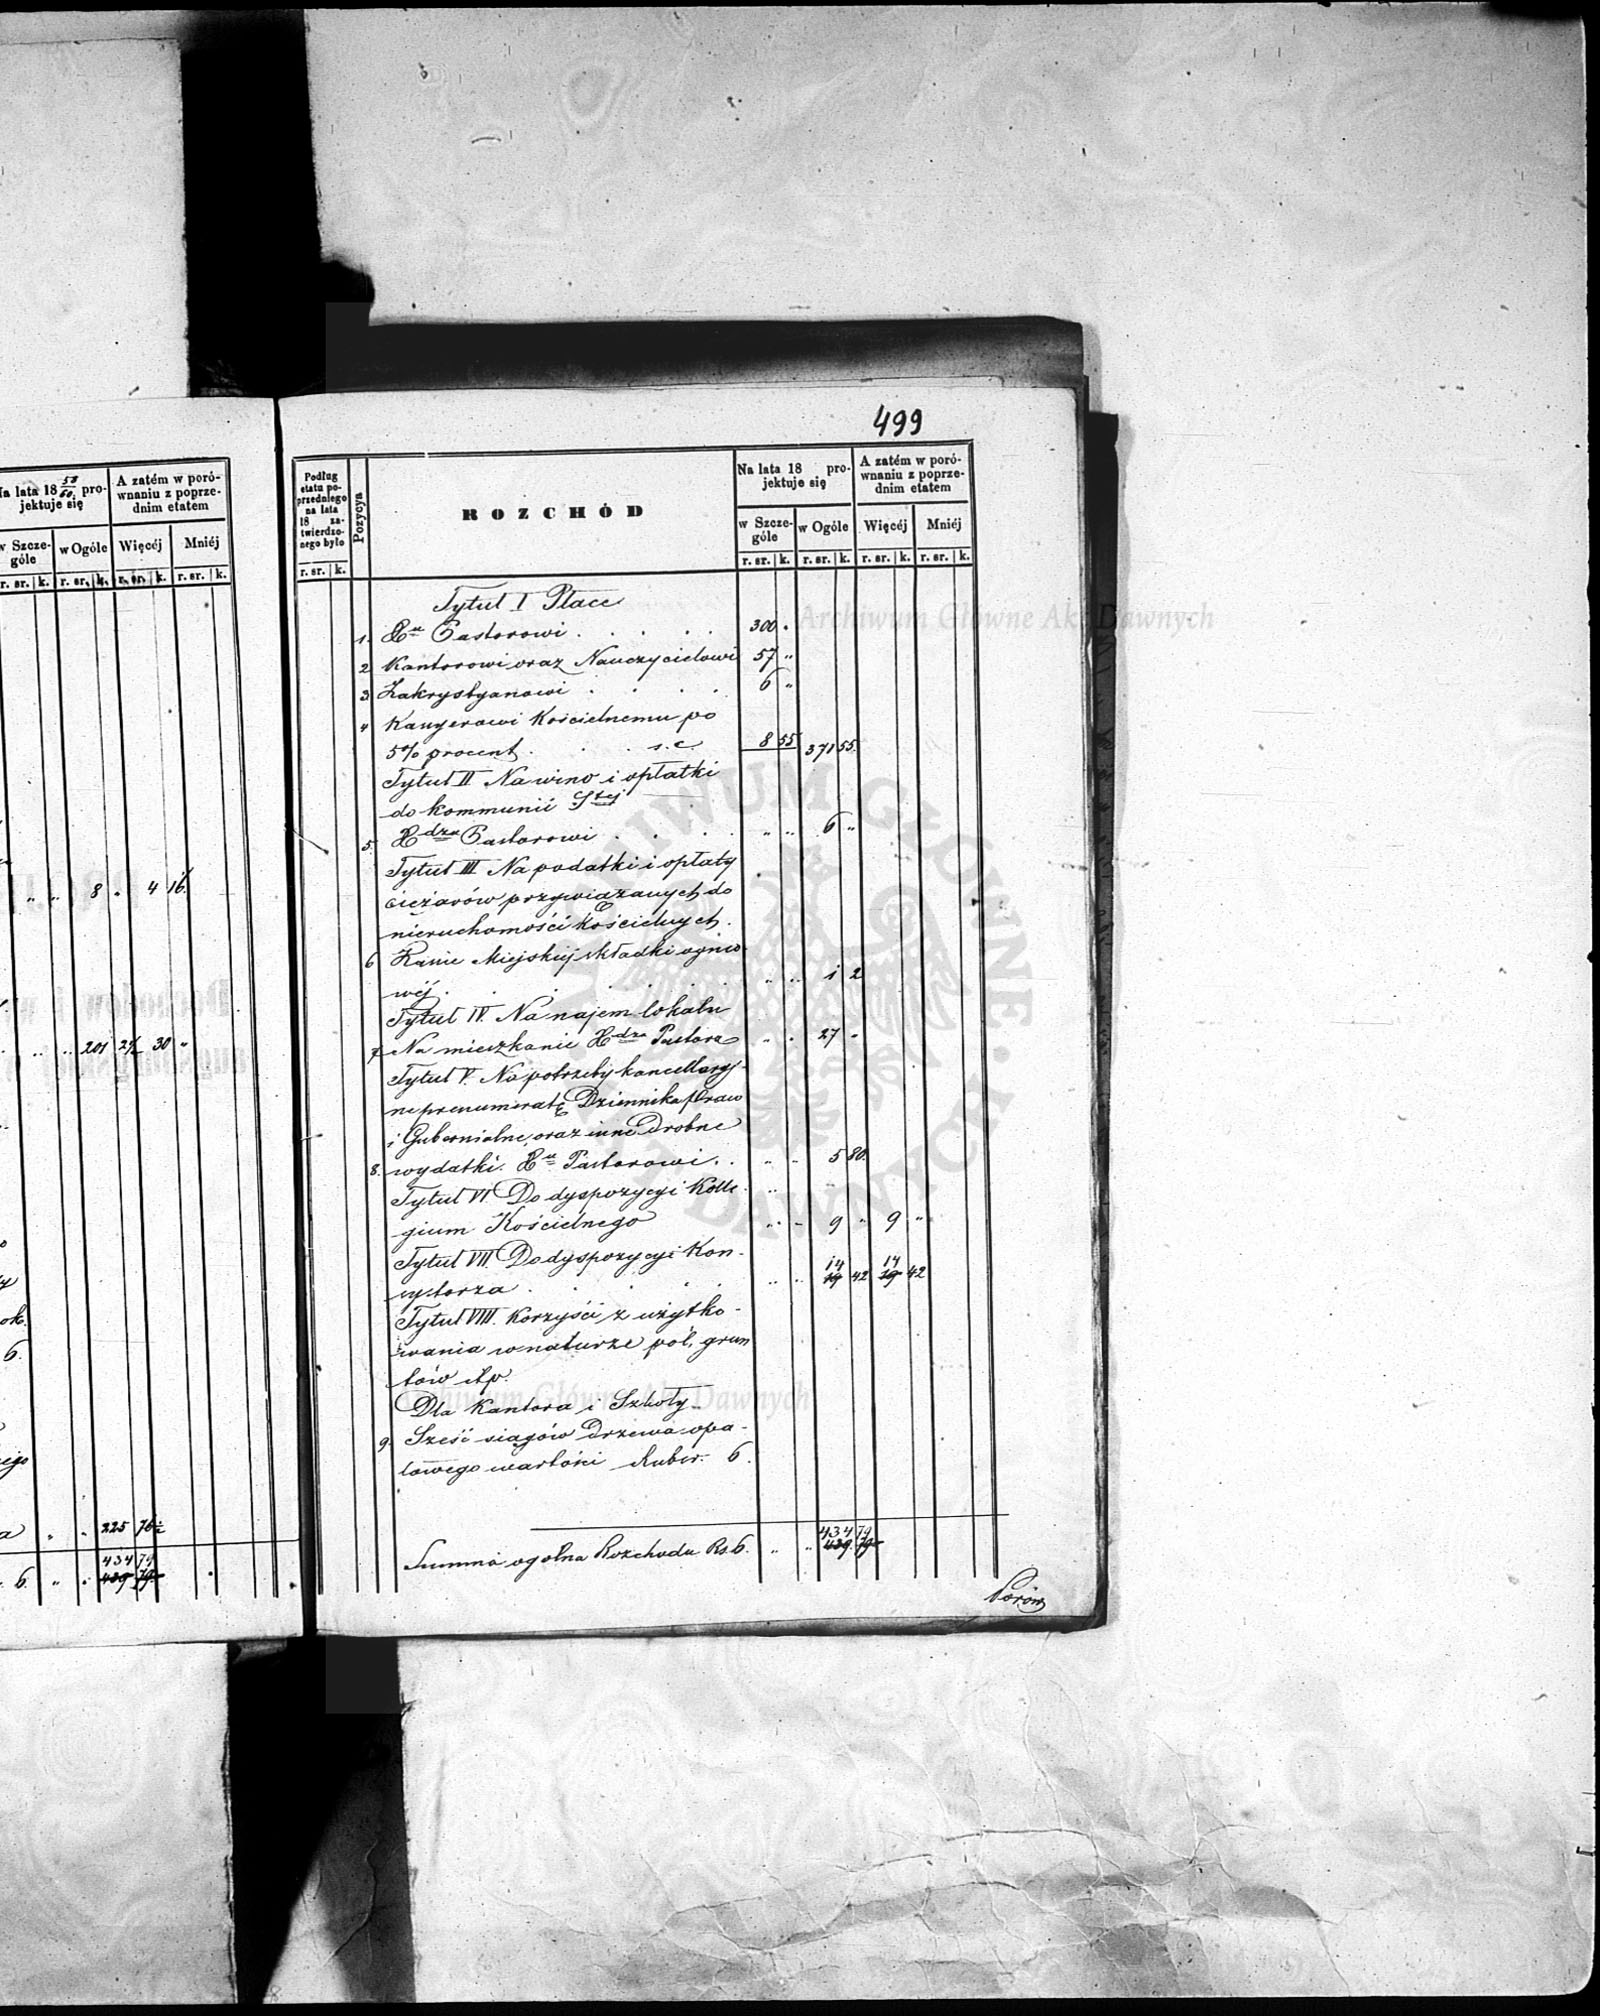 499
Na lata 18 58/60 pro-
jektuje się
A zatém w poró-
wnaniu z poprze-
dnim etatem
w Szcze-
góle
w Ogóle
Więcéj
Mniéj
r. sr. k. r. sr. k. r. sr. k. r. sr. k.
" " 8 " 4 16
" " 201 2½ 30 "
225 76½
434 79
6. " " 439 79
Podług
etatu po-
przedniego
na lata
18 za-
twierdzo-
nego było
r. sr. k.
Pozycya
ROZCHÓD
Na lata 18 pro-
jektuje się
A zatém w poró-
wnaniu z poprze-
dnim etatem
w Szcze-
góle
w Ogóle
Więcéj
Mniéj
r. sr. k. r. sr. k. r. sr. k. r. sr. k.
Tytuł I Płace
1. Xu Pastorowi . . . . . 300 "
2 Kantorowi oraz Nauczycielowi 57 "
3 Zakrystyanowi . . . . 6 "
4 Kassyerowi Kościelnemu po
5% procent . . . s.c. 8 55 371 55.
Tytuł II Na wino i opłatki
do kommunii Stej
5. Xdzu Pastorowi . . . . " " 6 "
Tytuł III Na podatki i opłaty
ciężarów przywiązanych do
nieruchomości Kościelnych.
6 Kassie Miejskiéj składki ognio
wéj . . . . . . " " 1 2
Tytuł IV. Na najem lokalu
7 Na mieszkanie Xdza Pastora " " 27 "
Tytuł V. Na potrzeby kancellaryj-
ne prenumeratę Dziennika Praw
i Gubernialne, oraz inne drobne
8. wydatki. Xu Pastorowi. . " " 5 80.
Tytuł VI Do dyspozycyi Kolle-
gium Kościelnego " " 9 " 9 "
Tytuł VII. Do dyspozycyi Kon-
systorza . . . . " " 14 19 42 14 19 42
Tytuł VIII. Korzyści z użytko-
wania w naturze pól, grun
tów itp.
Dla Kantora i Szkoły
9. Sześć siągów Drzewa opa-
łowego wartości Rubsr. 6.
434 79
Summa ogólna Rozchodu Rs. 6. " " 439 79
Porów
Archiwum Główne Akt Dawnych
Archiwum Główne Akt Dawnych
ARCHIWUM GŁÓWNE AKT DAWNYCH